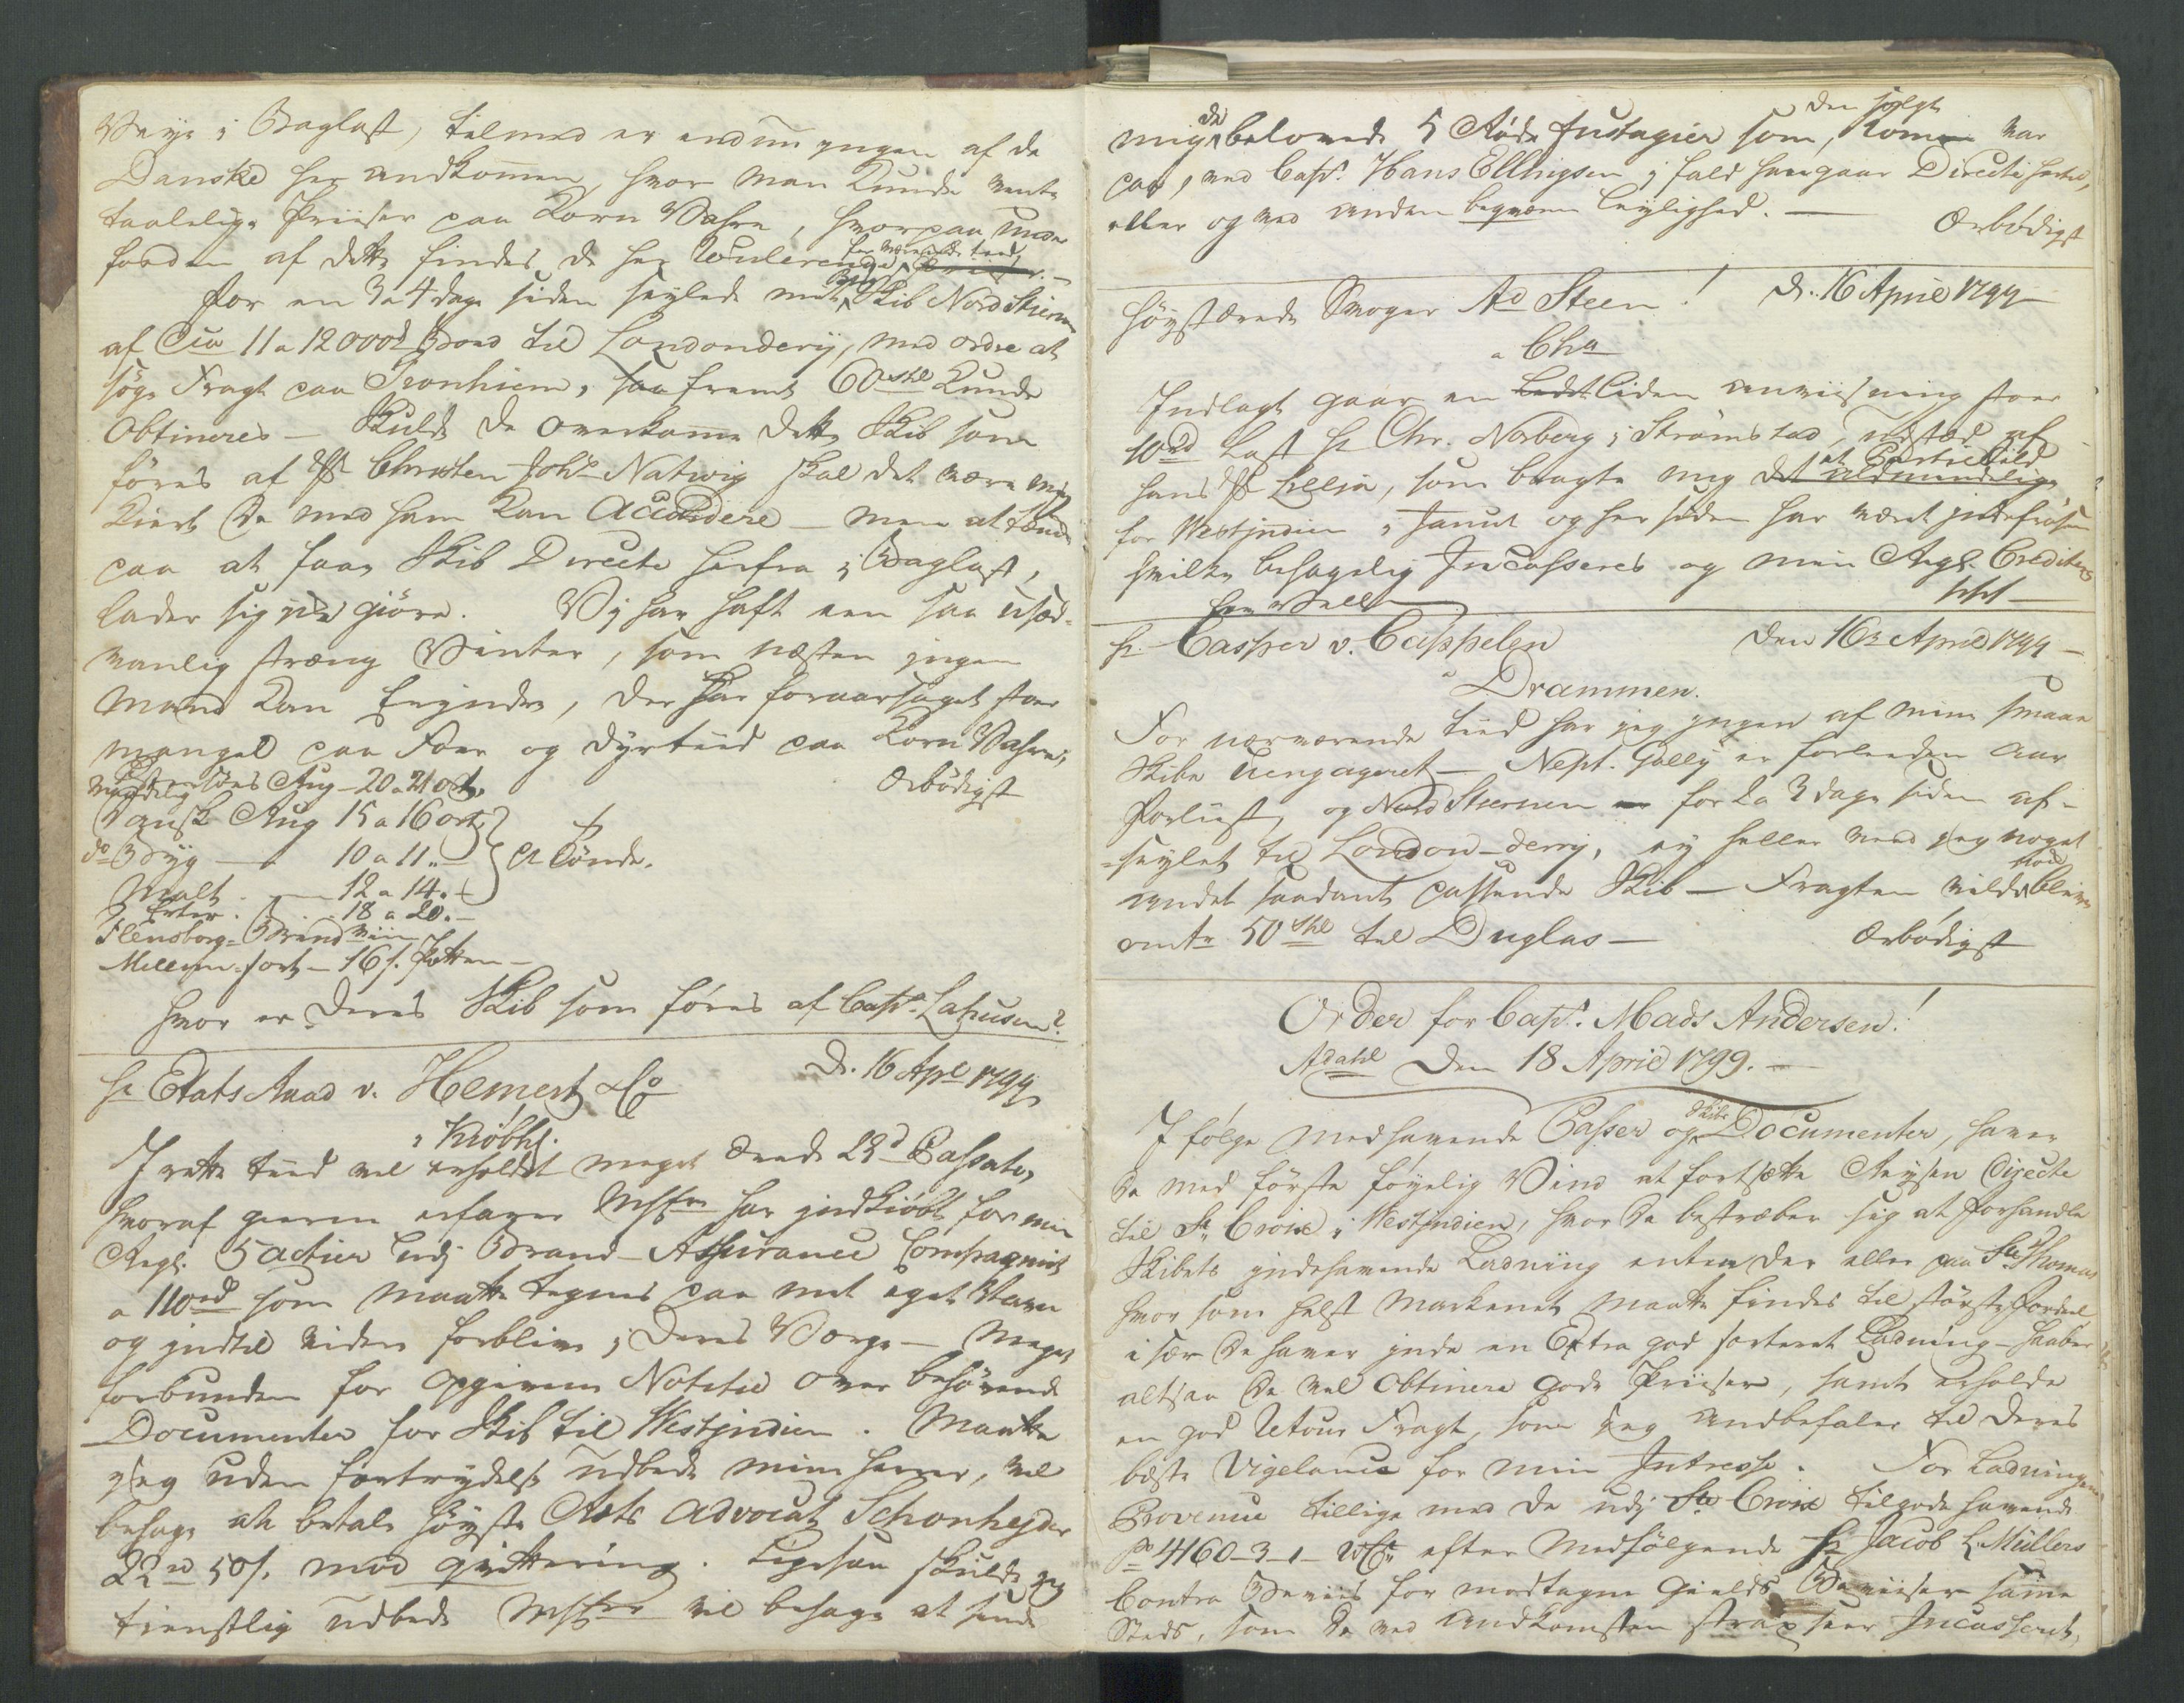 Veye i Baglast, tilmed er endnu ingen af de
Danske her andkommen, hvor man kunde vente
taalelige Priiser paa Korn Vahre, hvorpaa Under
forden af dette findes de her Coulerende
For en 3 a 4 dage siden seylede mit Skib Nord Stiernen
af Cia 11 a 12000 Bord til Londonderry, med ordre at
søge Fragt paa Tronhiem, saa fremt 60 shl kunde
Obtineres – Skulde De overkomme dette Skib som
føres af Sr Christen Johs Natwig skal det være mig
kiert De med ham kan Accordere – men at tænke
paa at faae Skib Directe herfra i Baglast,
lader sig ey giøre. Vj har haft een saa usæd-
vanlig stræng Vinter, som næsten ingen
Mand kan Erindre, der har foraarsaget stor
mangel paa Foer og dyrtiid paa Korn Vahre,
Ærbødigst
Rug – 20 a 21 ort,
Dansk Rug 15 a 16 ort
do Byg – 10 a 11 „ –
Malt – 12 a 14 „ –
Erter – 18 a 20 „ –
Tønde.
Flensborg Brendviin
Mellem sort – 16 s. Potten –
Hvor er Deres Skib som føres af Capt. Lahusen?
Hr Etats Raad v. Hemert & Co D. 16 Apl 1799
i Kiøbh.
I rette tiid vel erholdt meget ærede 23d Passato,
hvoraf gierne erfarer MHrr har indkiøbt for min
Regl. 5 actier udj Brand-Assurance Compagniet
a 110 rd som maatte tegnes paa mit eget Navn
og indtil viidere forblive i Deres Værge – Meget
forbunden for opgivne Notitie over behøvende
Documenter for Skib til Westjndien. Maatte
jeg uden fortrydelse udbede mine herrer, vil
behage at betale høyste Rets Advocat Schonheyder
22 rd 50 s. mod qvittering. Ligesaa skulde jeg
tienstlig udbede MHrr vil behage at sende
mig de belovede 5 Røde Fustagier som, den solgte Rom var
paa, med Capt. Hans Ellingsen i fald han gaar Directe hertil,
eller og med anden beqvæm leylighed. – Ærbødigst
Høystærede Svoger Ad Steen! D. 16 April 1799 –
a Cha
Indlagt gaar en liden anviisning stor
10 rd last Hr Chr. Norberg i Strømstad, udsted af
hans Sr Lilia, som bragte mig
for Westjndien i Januar og her siden har været indefrosen
hvilke behagelig Incasseres og min Regl. Crediteres
Hr. Casper v. Cappelen Den 16 April 1799 –
a Drammen.
For nærværende tiid har jeg ingen af mine smaae
Skibe Uengageret – Nept. Gally er forleeden Aar
Forliist, og Nord Stiernen for 2 a 3 dage siden af-
-seylet til London-derry, ey heller veed jeg noget
andet saadant passende Skib – Fragten vilde blive
omtr 50 shl til Duglas – Ærbødigst
Order for Capt. Mads Andersen!
Ardahl Den 18 April 1799. –
I følge medhavende Passer og Skibs Documenter, haver
De med første føyelig Vind at fortsætte Reysen Directe
til St Croix i Westjndien, hvor De bestræber sig at Forhandle
Skibets indehavende Ladning enten der eller paa St Thomas
hvor som helst Markenet maatte findes til største Fordeel,
i sær De haver inde en Extra god sorteret Ladning – haaber
altsaa De vel Obtinere gode Priiser, samt erholde
en god Retour Fragt, som jeg andbefaler til Deres
beste Vigelance for min Intresse. For Ladningens
Provenue tillige med de udj St Croix tilgode havende
Ps 4160-3-1- efter medfølgende Hr Jacob L. Müllers
Contra Beviis for modtagne Gields Beviiser samme
Steds, som De ved andkomsten strax seer Incasseret,